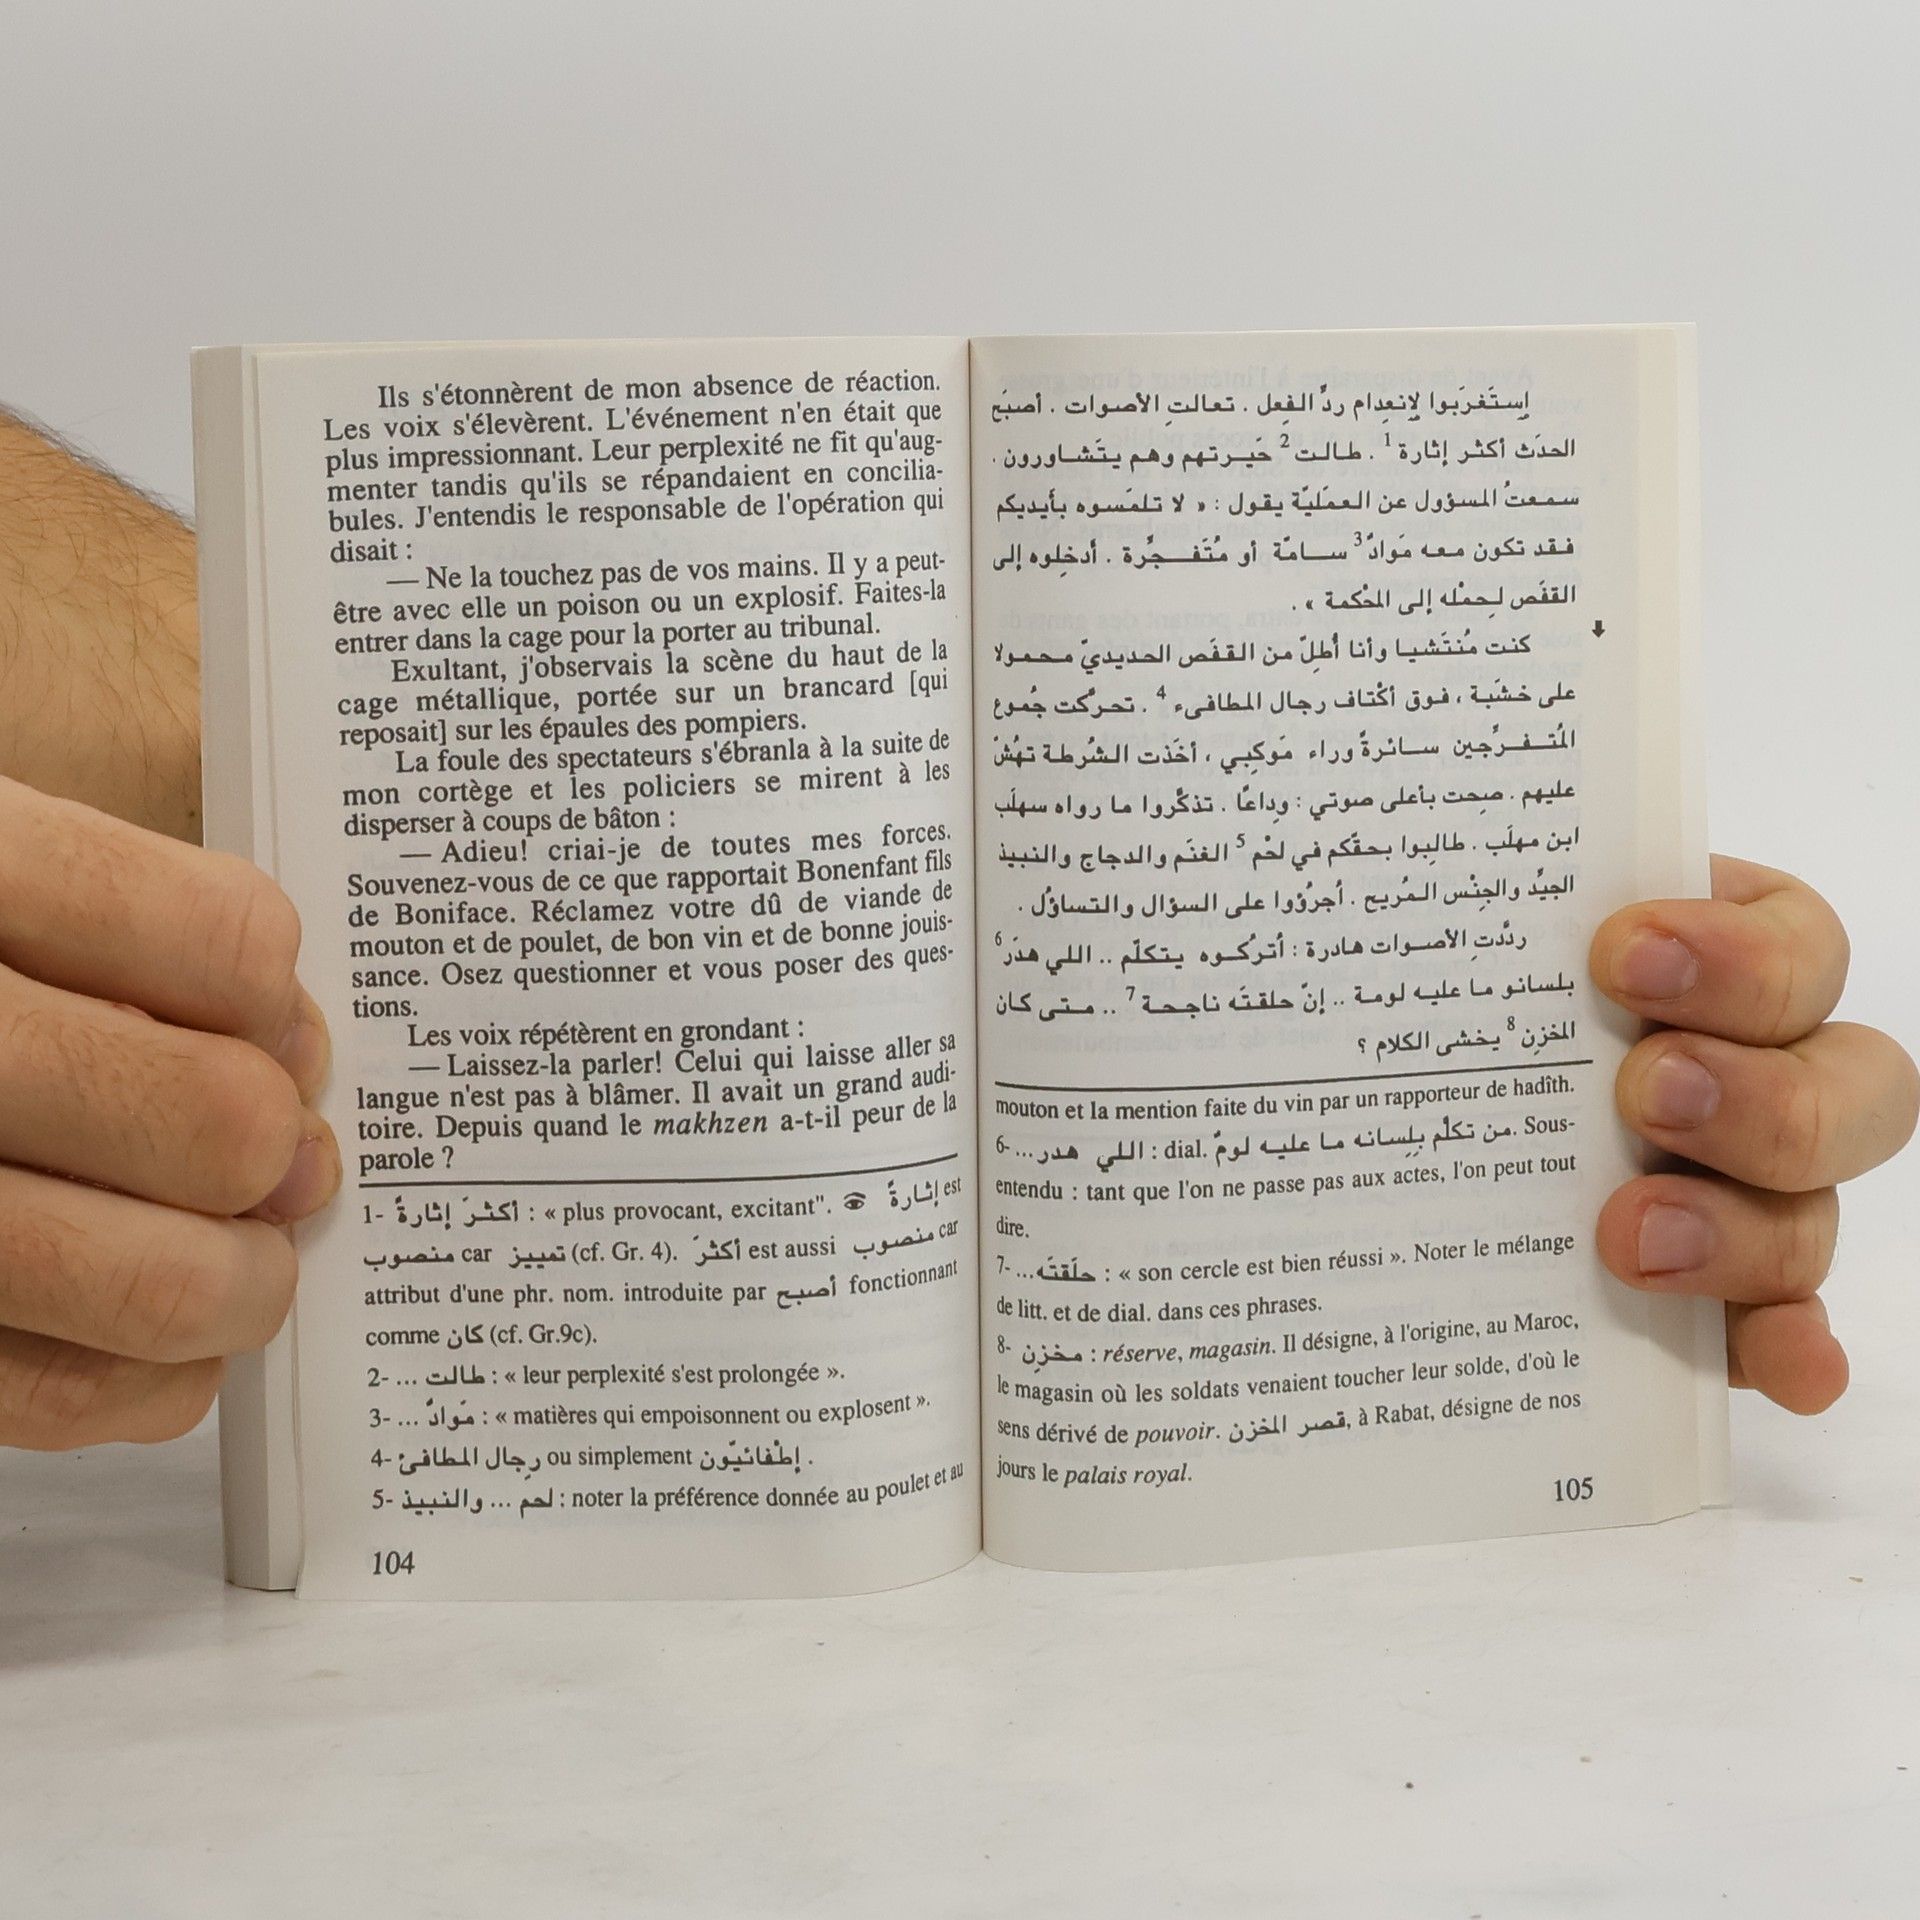 Ils s'étonnèrent de mon absence de réaction.
Les voix s'élevèrent. L'événement n'en était que
plus impressionnant. Leur perplexité ne fit qu'aug-
menter tandis qu'ils se répandaient en concilia-
bules. J'entendis le responsable de l'opération qui
disait :
— Ne la touchez pas de vos mains. Il y a peut-
être avec elle un poison ou un explosif. Faites-la
entrer dans la cage pour la porter au tribunal.
Exultant, j'observais la scène du haut de la
cage métallique, portée sur un brancard [qui
reposait] sur les épaules des pompiers.
La foule des spectateurs s'ébranla à la suite de
mon cortège et les policiers se mirent à les
disperser à coups de bâton :
— Adieu! criai-je de toutes mes forces.
Souvenez-vous de ce que rapportait Bonenfant fils
de Boniface. Réclamez votre dû de viande de
mouton et de poulet, de bon vin et de bonne jouis-
sance. Osez questionner et vous poser des ques-
tions.
Les voix répétèrent en grondant :
— Laissez-la parler! Celui qui laisse aller sa
langue n'est pas à blâmer. Il avait un grand audi-
toire. Depuis quand le makhzen a-t-il peur de la
parole ?
1- أكثرَ إثارةً : « plus provocant, excitant". إثارةً est
منصوب car تمييز (cf. Gr. 4). أكثرَ est aussi منصوب car
attribut d'une phr. nom. introduite par أصبح fonctionnant
comme كان (cf. Gr.9c).
2- ... طالت : « leur perplexité s'est prolongée ».
3- ... مَوادٌّ : « matières qui empoisonnent ou explosent ».
4- رِجال المطافئ ou simplement إطْفائيّون .
5- لحم ... والنبيذ : noter la préférence donnée au poulet et au
104
إستَغرَبوا لإنعِدام ردِّ الفِعل . تعالتِ الأصوات . أصبَح
الحدَث أكثر إثارة 1 . طالت 2 حَيرتهم وهم يتَشاورون .
سمعتُ المسؤول عن العمَليّة يقول : « لا تلمَسوه بأيديكم
فقد تكون معه مَوادٌّ 3 سامّة أو مُتَفجِّرة . أدخِلوه إلى
القفَص لحِمْله إلى المحْكمة » .
كنت مُنتَشيا وأنا أُطِلّ من القفَص الحديديّ محمولا
على خشَبة ، فوق أكْتاف رجال المطافىء 4 . تحرّكت جُموع
المُتفرِّجين سائرةً وراء مَوكِبي ، أخَذت الشُرطة تهُشّ
عليهم . صِحت بأعلى صوتي : وداعًا . تذكَّروا ما رواه سهلَب
ابن مهلَب . طالِبوا بحقّكم في لحْم 5 الغنَم والدجاج والنبيذ
الجيِّد والجِنْس المُريح . أجرُؤوا على السؤال والتساؤل .
ردَّدتِ الأصوات هادرة : أتركوه يتكلّم .. اللي هدَر 6
بلسانو ما عليه لومة .. إنّ حلقتَه ناجحة 7 .. متى كان
المخزِن 8 يخشى الكلام ؟
mouton et la mention faite du vin par un rapporteur de hadîth.
6- اللي هدر... : dial. من تكلّم بِلِسانه ما عليه لومٌ. Sous-
entendu : tant que l'on ne passe pas aux actes, l'on peut tout
dire.
7- حلَقتَه... : « son cercle est bien réussi ». Noter le mélange
de litt. et de dial. dans ces phrases.
8- مخزِن : réserve, magasin. Il désigne, à l'origine, au Maroc,
le magasin où les soldats venaient toucher leur solde, d'où le
sens dérivé de pouvoir. قصر المخزن, à Rabat, désigne de nos
jours le palais royal.
105